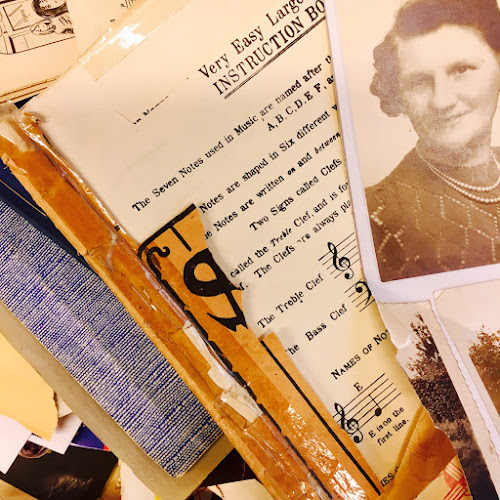 Very Easy Large
INSTRUCTION BO
The Seven Notes used in Music are named after the
A, B, C, D, E, F, a
Notes are shaped in Six different
e Notes are written on and between
Two Signs called Clefs
called the Treble Clef, and is fo
The Clefs are always pla
The Treble Clef
he Bass Clef
NAMES OF NO
E
E is on the
first line.